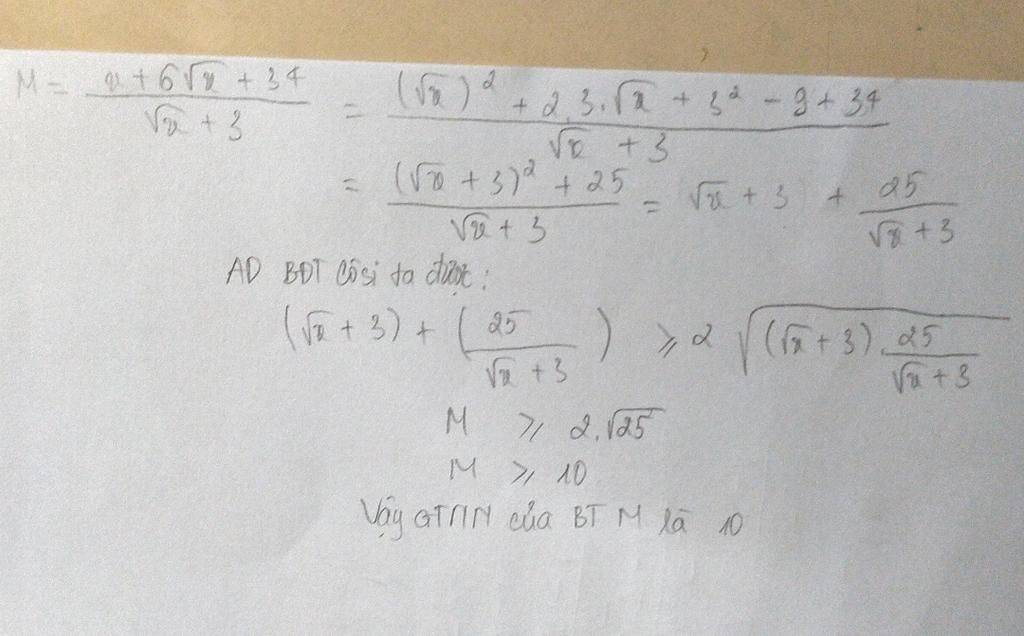 M = x + 6√x + 34 / √x + 3 = (√x)² + 2.3.√x + 3² - 9 + 34 / √x + 3
= (√x + 3)² + 25 / √x + 3 = √x + 3 + 25 / √x + 3
AD BĐT Côsi ta được:
(√x + 3) + (25 / √x + 3) ⩾ 2 √(√x + 3) . 25 / √x + 3
M ⩾ 2.√25
M ⩾ 10
Vậy GTNN của BT M là 10